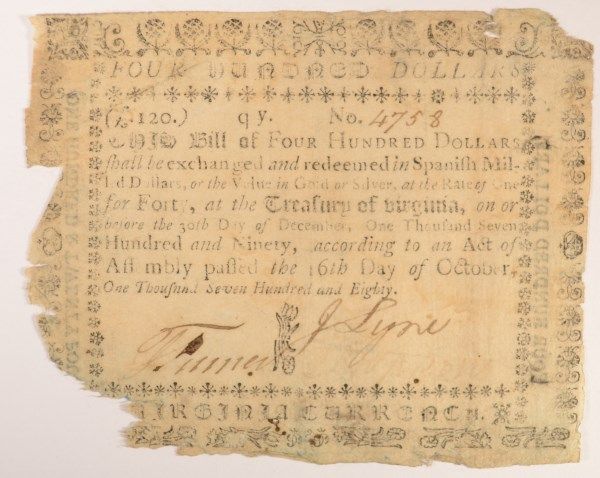 FOUR HUNDRED DOLLARS
(£.120.) qy. No. 4758
THIS Bill of FOUR HUNDRED DOLLARS
shall be exchanged and redeemed in Spanish Mil-
l d Dollars, or the Value in Gold or Silver, at the Rate of One
for Forty, at the Treasury of Virginia, on or
before the 30th Day of December, One Thousand Seven
Hundred and Ninety, according to an Act of
Ass mbly passed the 16th Day of October,
One Thousand Seven Hundred and Eighty.
J Lyne
VIRGINIA CURRENCY.
ONE HUNDRED & TWENTY PO
FOUR HUNDRED DOLLARS